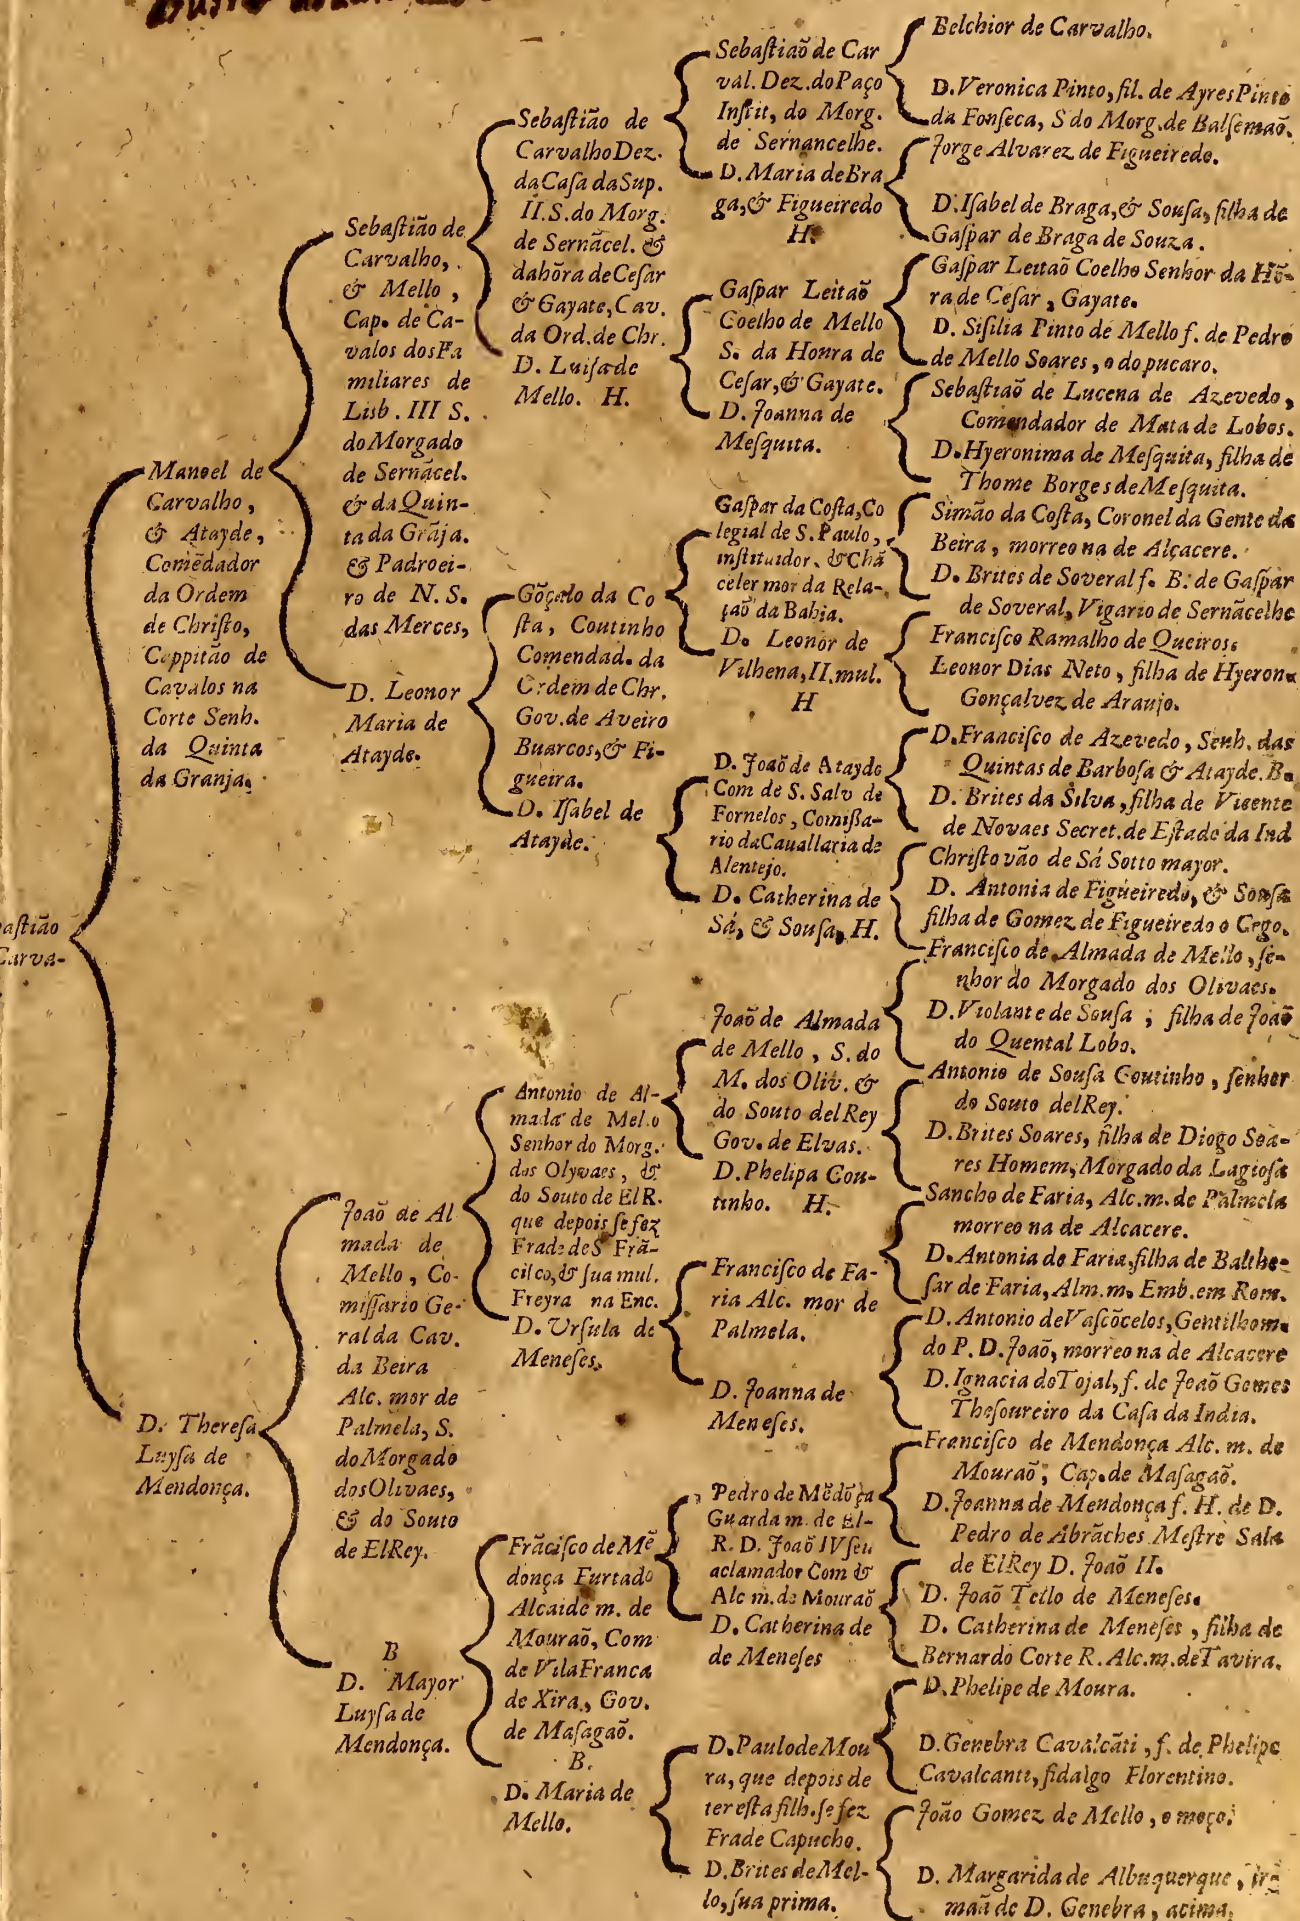 aſtião
Carva-
Manoel de
Carvalho,
& Atayde,
Comẽdador
da Ordem
de Chriſto,
Cappitão de
Cavalos na
Corte Senh.
da Quinta
da Granja.
D. Thereſa
Luyſa de
Mendonça.
Sebaſtião de
Carvalho,
& Mello,
Cap. de Ca-
valos dos Fa
miliares de
Lisb. III S.
do Morgado
de Sernãcel.
& da Quin-
ta da Grãja.
& Padroei-
ro de N. S.
das Merces,
D. Leonor
Maria de
Atayde.
João de Al
mada de
Mello, Co-
miſſario Ge-
ral da Cav.
da Beira
Alc. mor de
Palmela, S.
do Morgado
dos Olivaes,
& do Souto
de ElRey.
B
D. Mayor
Luyſa de
Mendonça.
Sebaſtião de
Carvalho Dez.
da Caſa da Sup.
II. S. do Morg.
de Sernãcel. &
da hõra de Ceſar
& Gayate, Cav.
da Ord. de Chr.
D. Luiſa de
Mello. H.
Gõçalo da Co
ſta, Coutinho
Comendad. da
Ordem de Chr.
Gov. de Aveiro
Buarcos, & Fi-
gueira.
D. Iſabel de
Atayde.
Antonio de Al-
mada de Mello
Senhor do Morg.
dos Olyvaes, &
do Souto de El R.
que depois ſe fez
Frade de S Frã-
ciſco, & ſua mul.
Freyra na Enc.
D. Urſula de
Meneſes.
Frãciſco de Mẽ
donça Furtado
Alcaide m. de
Mouraõ, Com
de Vila Franca
de Xira, Gov.
de Maſagaõ.
B.
D. Maria de
Mello.
Sebaſtiaõ de Car
val. Dez. do Paço
Inſtit, do Morg.
de Sernancelhe.
D. Maria de Bra
ga, & Figueiredo
H.
Gaſpar Leitaõ
Coelho de Mello
S. da Honra de
Ceſar, & Gayate.
D. Joanna de
Meſquita.
Gaſpar da Coſta, Co
legial de S. Paulo,
inſtituidor. & Chã
celer mor da Rela-
çaõ da Bahia.
D. Leonor de
Vilhena, II. mul.
H
D. Joaõ de Atayde
Com de S. Salv de
Fornelos, Comiſſa-
rio da Cauallaria de
Alentejo.
D. Catherina de
Sá, & Souſa, H.
Joaõ de Almada
de Mello, S. do
M. dos Oliv. &
do Souto delRey
Gov. de Elvas.
D. Phelipa Cou-
tinho. H.
Franciſco de Fa-
ria Alc. mor de
Palmela.
D. Joanna de
Meneſes.
Pedro de Mẽdõça
Guarda m. de El-
R. D. Joaõ IV ſeu
aclamador Com &
Alc m. de Mouraõ
D. Catherina de
de Meneſes
D. Paulo de Mou
ra, que depois de
ter eſta filh. ſe fez
Frade Capucho.
D. Brites de Mel-
lo, ſua prima.
Belchior de Carvalho.
D. Veronica Pinto, fil. de Ayres Pinto
da Fonſeca, S do Morg. de Balſemaõ.
Jorge Alvarez de Figueiredo.
D. Iſabel de Braga, & Souſa, filha de
Gaſpar de Braga de Souza.
Gaſpar Leitaõ Coelho Senhor da Hõ-
ra de Ceſar, Gayate.
D. Siſilia Pinto de Mello f. de Pedro
de Mello Soares, o do pucaro.
Sebaſtiaõ de Lucena de Azevedo,
Comendador de Mata de Lobos.
D. Hyeronima de Meſquita, filha de
Thome Borges de Meſquita.
Simão da Coſta, Coronel da Gente da
Beira, morreo na de Alçacere.
D. Brites de Soveral f. B. de Gaſpar
de Soveral, Vigario de Sernãcelhe
Franciſco Ramalho de Queiros.
Leonor Dias Neto, filha de Hyeron.
Gonçalvez de Araujo.
D. Franciſco de Azevedo, Senh. das
Quintas de Barboſa & Atayde. B.
D. Brites da Silva, filha de Vicente
de Novaes Secret. de Eſtado da Ind
Chriſtovão de Sá Sotto mayor.
D. Antonia de Figueiredo, & Souſa
filha de Gomez de Figueiredo o Cego.
Franciſco de Almada de Mello, ſe-
nhor do Morgado dos Olivaes.
D. Violante de Souſa; filha de Joaõ
do Quental Lobo.
Antonio de Souſa Coutinho, ſenhor
do Souto delRey.
D. Brites Soares, filha de Diogo Soa-
res Homem, Morgado da Lagioſa
Sancho de Faria, Alc. m. de Palmela
morreo na de Alcacere.
D. Antonia de Faria, filha de Balthe-
ſar de Faria, Alm. m. Emb. em Rom.
D. Antonio de Vaſcõcelos, Gentilhom.
do P. D. Joaõ, morreo na de Alcacere
D. Ignacia do Tojal, f. de Joaõ Gomes
Theſoureiro da Caſa da India.
Franciſco de Mendonça Alc. m. de
Mouraõ, Cap. de Maſagaõ.
D. Joanna de Mendonça f. H. de D.
Pedro de Abrãches Meſtre Sala
de ElRey D. Joaõ II.
D. Joaõ Tello de Meneſes.
D. Catherina de Meneſes, filha de
Bernardo Corte R. Alc. m. de Tavira.
D. Phelipe de Moura.
D. Genebra Cavalcãti, f. de Phelipe
Cavalcanti, fidalgo Florentino.
João Gomez de Mello, o moço.
D. Margarida de Albuquerque, ir-
maã de D. Genebra, acima.